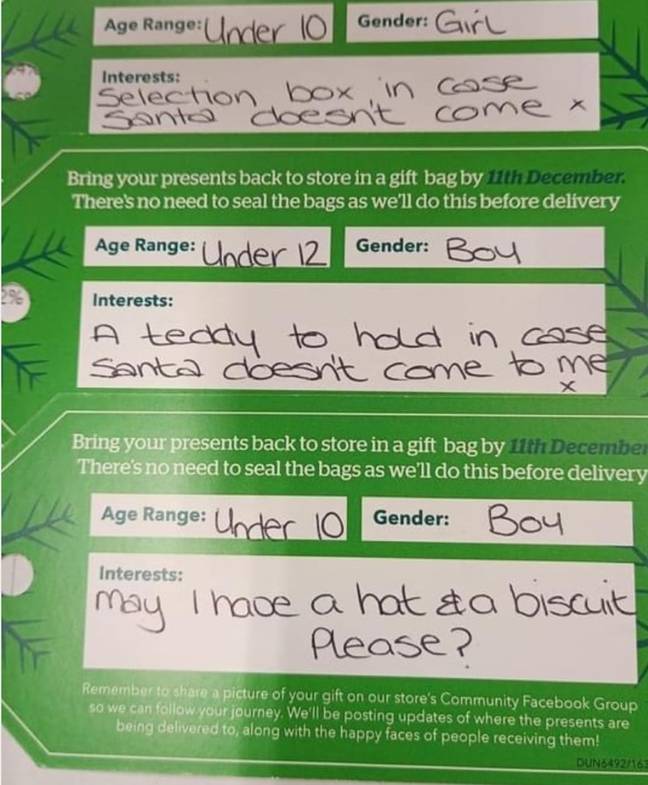 Age Range: Under 10 Gender: Girl
Interests:
Selection box in case
Santa doesn't come x
Bring your presents back to store in a gift bag by 11th December.
There's no need to seal the bags as we'll do this before delivery
Age Range: Under 12 Gender: Boy
Interests:
A teddy to hold in case
Santa doesn't come to me
x
Bring your presents back to store in a gift bag by 11th December
There's no need to seal the bags as we'll do this before delivery
Age Range: Under 10 Gender: Boy
Interests:
May I have a hat & a biscuit
Please?
Remember to share a picture of your gift on our store's Community Facebook Group
so we can follow your journey. We'll be posting updates of where the presents are
being delivered to, along with the happy faces of people receiving them!
DUN6492/163